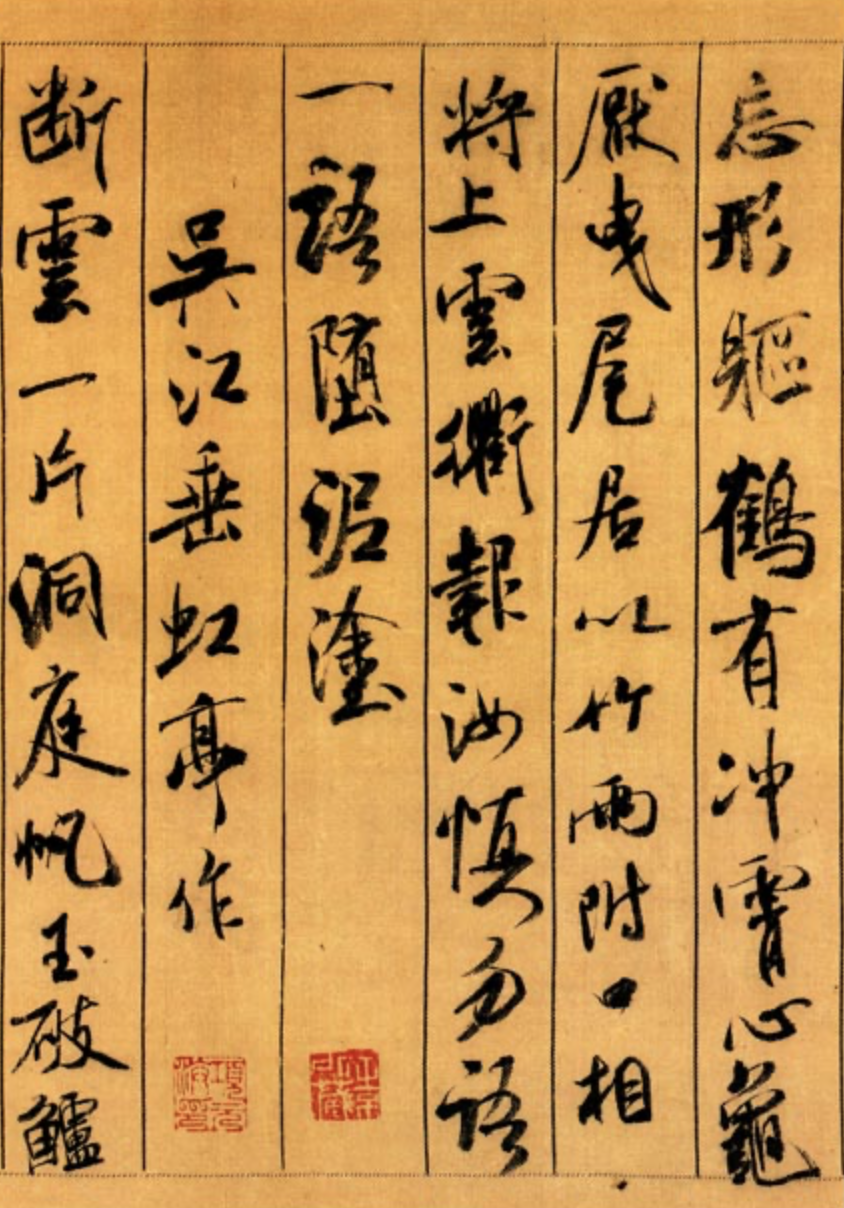 忘形軀鶴有冲霄心龜
厭曳尾居以竹兩附口相
將上雲衢報汝慎勿語
一語堕泥塗
吳江垂虹亭作
項元汴印
断雲一片洞庭帆玉破鱸